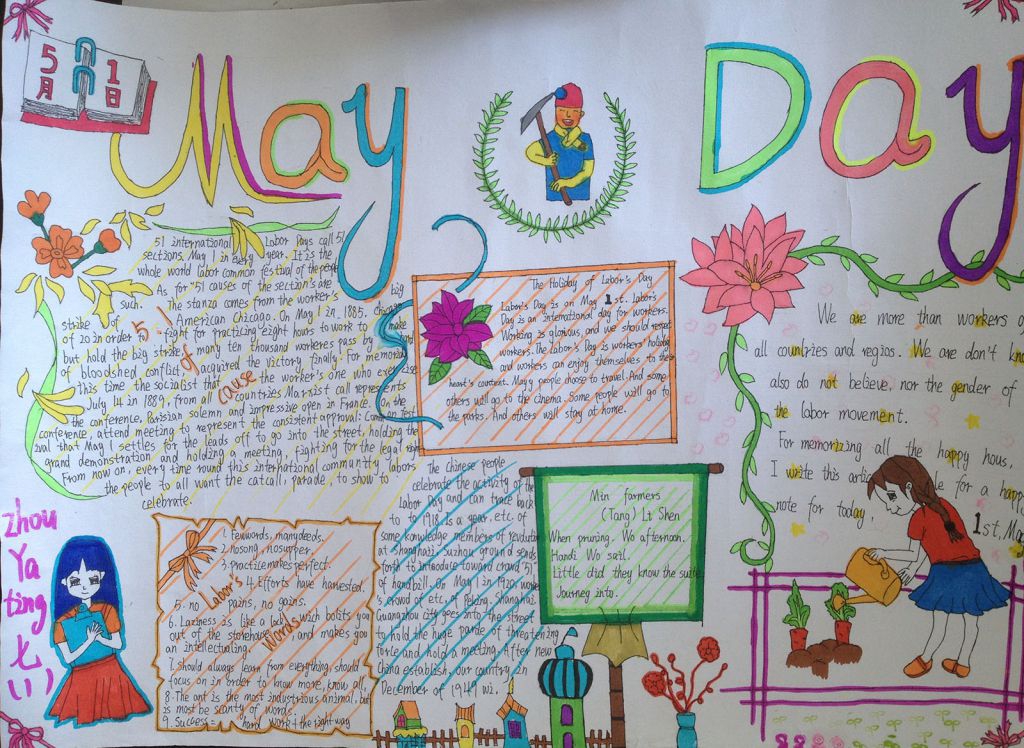 5月1日
May Day
51 international Labor Days call 51
sections, May 1 in every year. It is the
whole world labor common festival of the people
As for "51 causes of the section's are
such. The stanza comes from the worker's big
strike of American Chicago. On May 1 in 1885. Chicago
of 20 in order fight for practicing eight hours to work to make
but hold the big strike, many ten thousand workeres pass by
of bloodshed conflict, acquired the victory finally. For memory
this time the socialist that the worker's one who exercise
July 14 in 1889, from all countries Marxist call represents
the conference, Parisian solemn and impressive open in France. On the
conference, attend meeting to represent the consistent approval: Common fest
ival that May 1 settles for the leads off to go into the street, holding the
grand demonstration and holding a meeting, fighting for the legal
From now on, every time round this international communtiy, labors
the people to all want the catcall, parade, to show to
celebrate.
5.1 of cause
The Holiday of Labor's Day
Labor's Day is on May 1st. labor's
Day is an international day for workers.
Working is glorious, and we should respect
workers. The labor's Day is workers' holiday
and workers can enjoy themselves to their
heart's content. Mayy people choose to travel. And some
others will go to the cinema. Some people will go to
the parks. And others will stay at home.
We are more than workers
all countries and regios. We are don't
also do not believe, nor the gender of
the labor movement.
For memorizing all the happy hous,
I write this for a
note for today,
1st.
zhou
Ya
ting
七
(1)
Labor's Words
1. Fewwords, manydeeds.
2. nosong, nosupper.
3. practice makes perfect.
4. Efforts have harvested.
5. no pains, no gains.
6. Laziness is like a lock, which bolits you
out of the storehouse, and makes you
an intellectuling.
7. should always learn from everything, should
focus on in order to know more, know all.
8. The ant is the most industrious animal, but
is most be scanty of words
9. Success = hard work + the right way
The chinese people
celebrate the activity of the
Labor Day and can trace back
to to 1918 Is a year. etc. of
some knowledge members of revolution
at Shanghai. Suzhou ground sends
forth to introduce toward crowd 51
of handbill. On May 1 in 1920,
crowd of etc. of Peking. Shanghai.
Guangzhou city goes into the street
to hold the huge parade of threatening
forle and hold a meeting. After new
China establish. our country in
December of 194 wi.
Min farmers
(Tang) Li Shen
When pruning. Wo afternoon.
Handi Wo soil.
Little did they know the
Journey into.